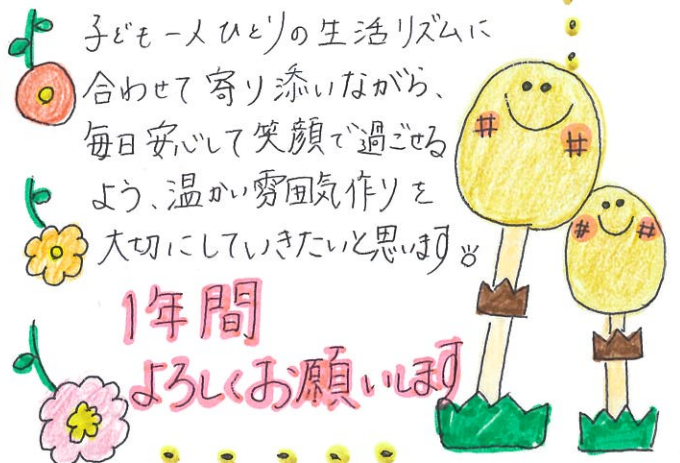 子ども一人ひとりの生活リズムに
合わせて寄り添いながら、
毎日安心して笑顔で過ごせる
よう、温かい雰囲気作りを
大切にしていきたいと思います。
1年間
よろしくお願いします